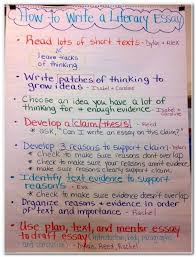 How to Write a Literary Essay
• Read lots of short texts - Dylan + Alex
leave tracks
of thinking
• Write patches of thinking to
grow ideas - Isabel + Caroline
• Choose an idea you have a lot of
thinking for + enough evidence - Isabel + Caroline
• Develop a claim/thesis - Reed
* ask, "Can I write an essay on this claim?"
• Develop 3 reasons to support claim - Dylan
✓ Check to make sure reasons dont overlap
✓ Check to make sure your reasons arent evidence
✓ Check to make sure examples clearly support
• Identify text evidence to support
reasons - Eva
✓ Check to make sure evidence doesn't overlap
• Organize reasons + evidence in order
of text and importance - Rachel
• Use plan, text, and mentor essay
to draft essay (introduction, body paragraphs
and conclusion) - Dylan, Reed, Rachel